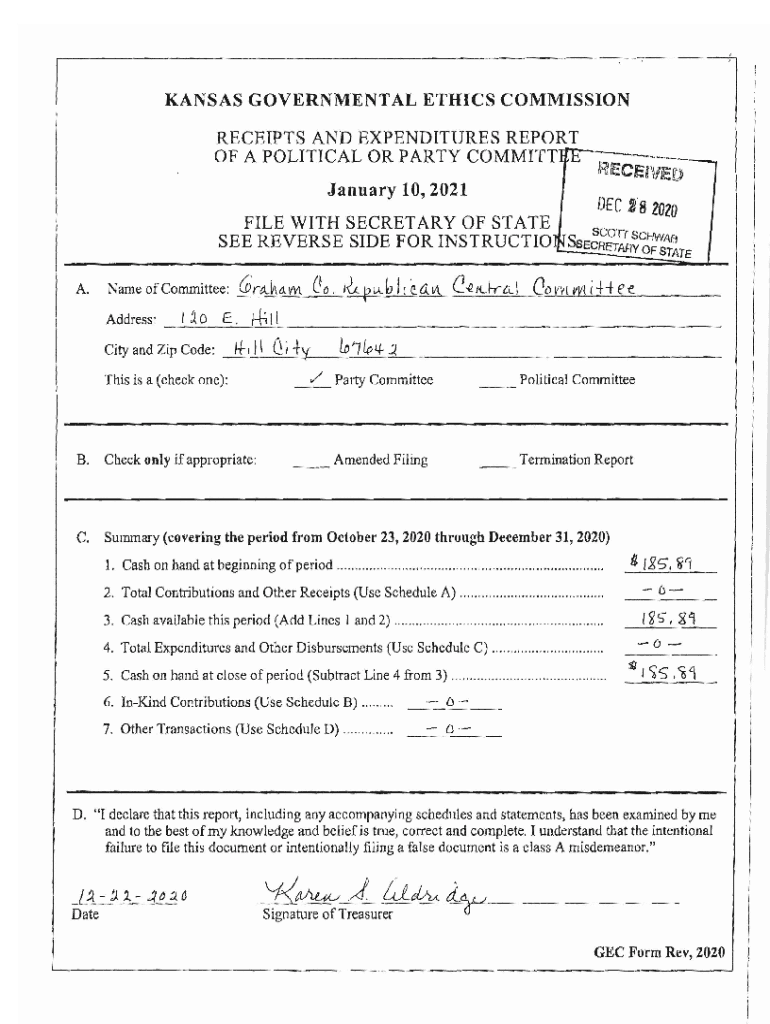 KANSAS GOVERNMENTAL ETHICS COMMISSION
RECEIPTS AND EXPENDITURES REPORT
OF A POLITICAL OR PARTY COMMITTEE
January 10, 2021
FILE WITH SECRETARY OF STATE
SEE REVERSE SIDE FOR INSTRUCTIONS
RECEIVED
DEC 28 2020
SCOTT SCHWAB
SECRETARY OF STATE
A. Name of Committee: Graham Co. Republican Central Committee
Address: 120 E. Hill
City and Zip Code: Hill City 67642
This is a (check one): ✓ Party Committee Political Committee
B. Check only if appropriate: Amended Filing Termination Report
C. Summary (covering the period from October 23, 2020 through December 31, 2020)
1. Cash on hand at beginning of period $185.89
2. Total Contributions and Other Receipts (Use Schedule A) -0-
3. Cash available this period (Add Lines 1 and 2) 185.89
4. Total Expenditures and Other Disbursements (Use Schedule C) -0-
5. Cash on hand at close of period (Subtract Line 4 from 3) $185.89
6. In-Kind Contributions (Use Schedule B) -0-
7. Other Transactions (Use Schedule D) -0-
D. "I declare that this report, including any accompanying schedules and statements, has been examined by me
and to the best of my knowledge and belief is true, correct and complete. I understand that the intentional
failure to file this document or intentionally filing a false document is a class A misdemeanor."
12-22-2020 Karen S. Aldridge
Date Signature of Treasurer
GEC Form Rev, 2020